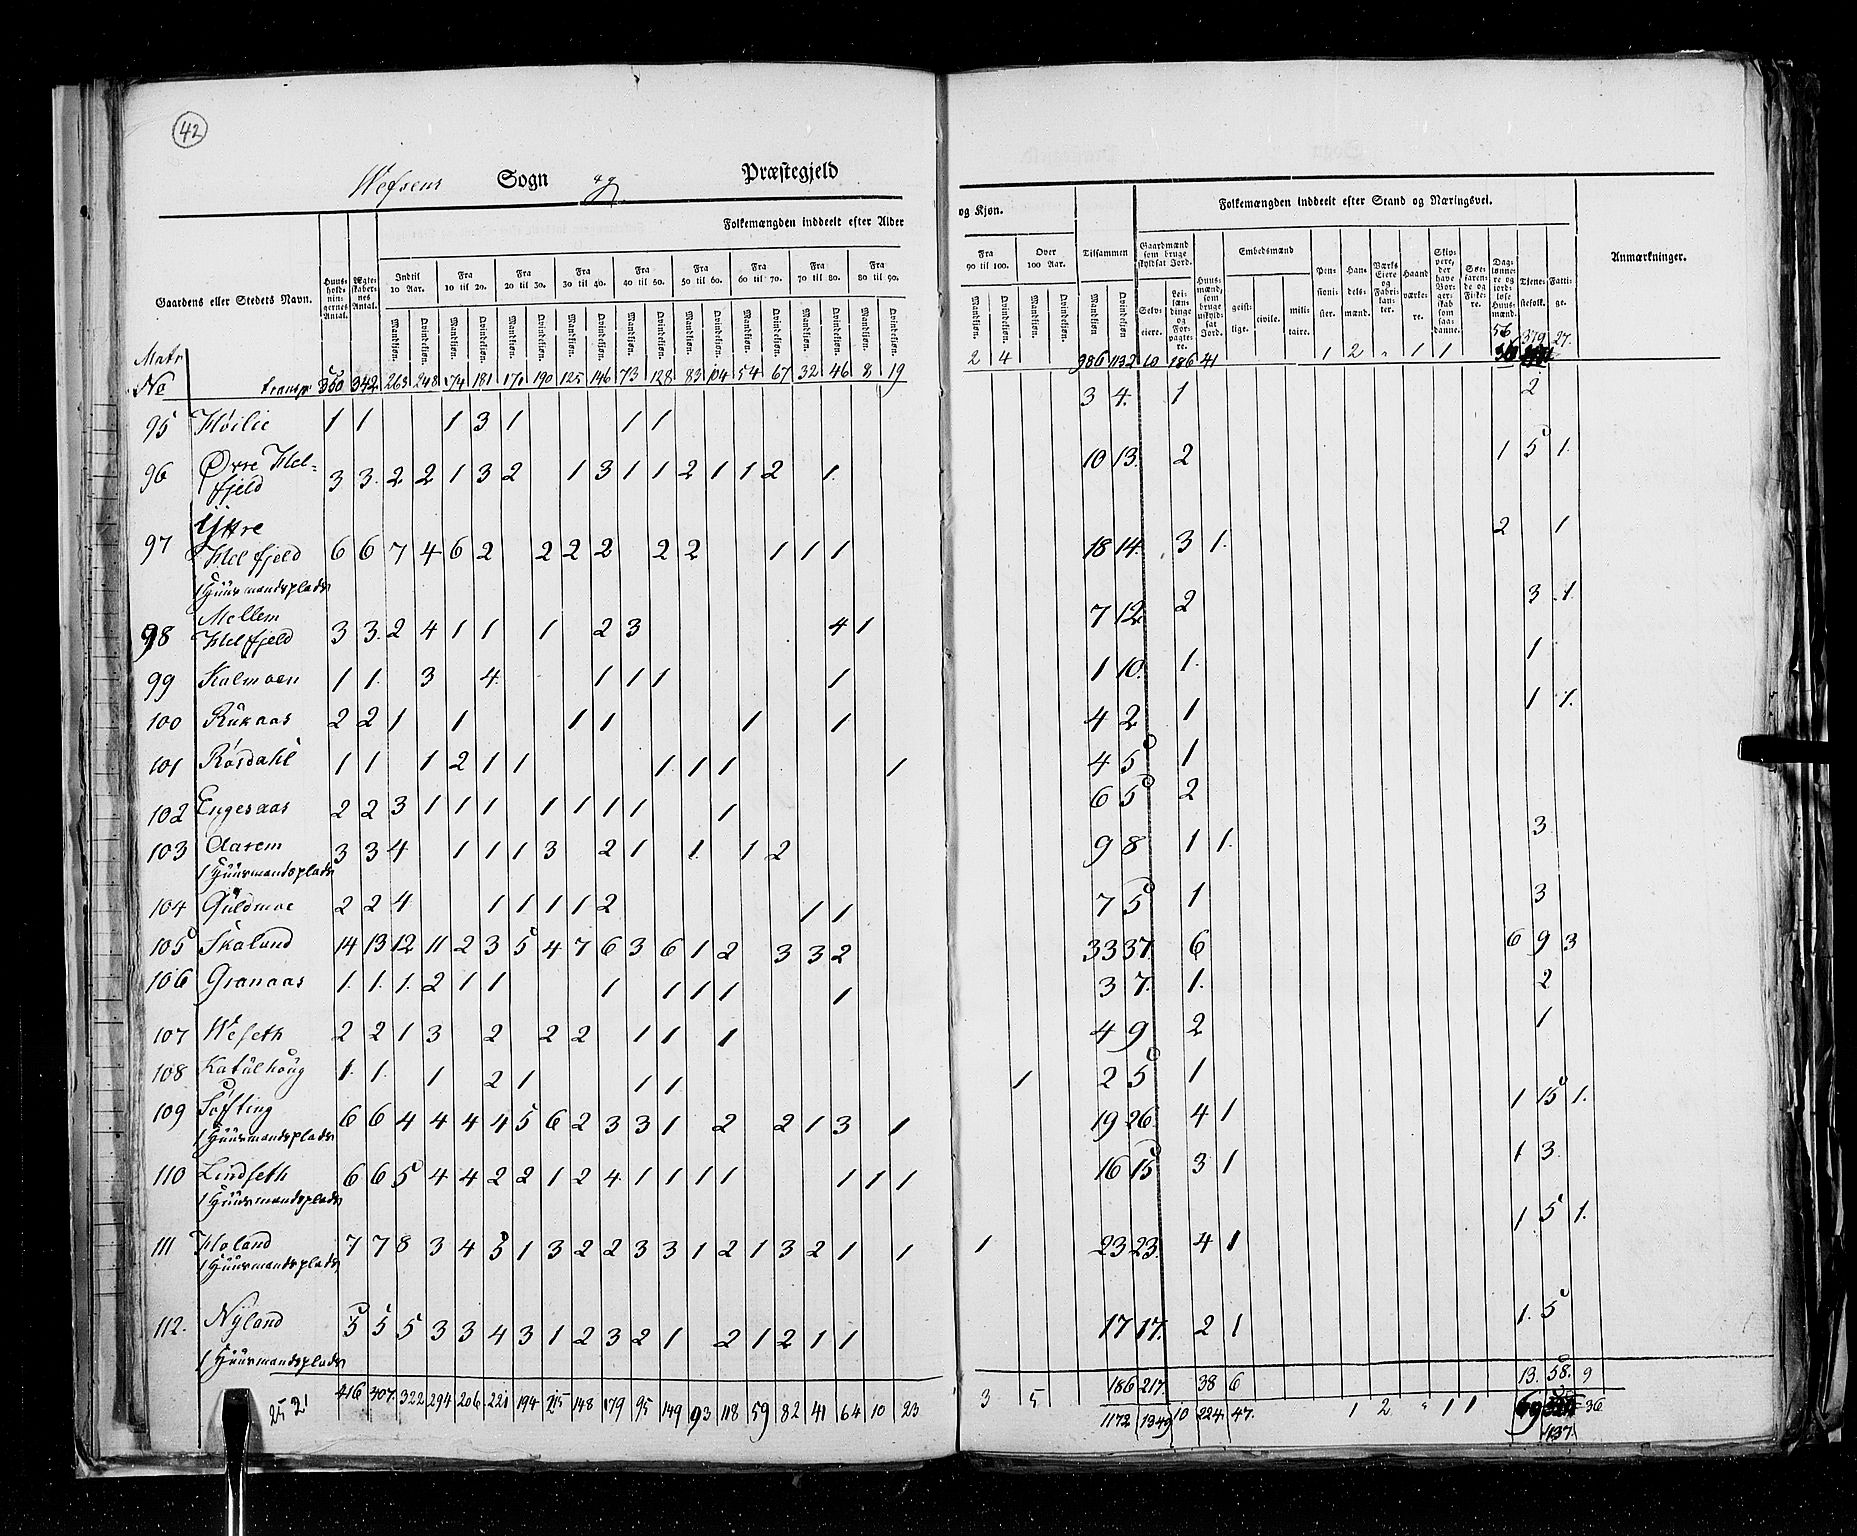 42
Wefsens Sogn og Præstegjeld
Gaardens eller Stedets Navn.
Huus-holdnin-gernes Antal.
Ægte-skaber-nes Antal.
Folkemængden inddeelt efter Alder
Indtil 10 Aar.
Fra 10 til 20.
Fra 20 til 30.
Fra 30 til 40.
Fra 40 til 50.
Fra 50 til 60.
Fra 60 til 70.
Fra 70 til 80.
Fra 80 til 90.
Mandkiøn. Qvindekiøn. Mandkiøn. Qvindekiøn. Mandkiøn. Qvindekiøn. Mandkiøn. Qvindekiøn. Mandkiøn. Qvindekiøn. Mandkiøn. Qvindekiøn. Mandkiøn. Qvindekiøn. Mandkiøn. Qvindekiøn. Mandkiøn. Qvindekiøn.
Matr
No transp 360 342 263 248 174 181 170 190 125 146 73 128 83 104 54 67 32 46 8 19
95 Høilie 1 1 1 3 1 1 1
96 Øvre Hel-
fjeld 3 3. 2 2 1 3 2 1 3 1 1 2 1 1 2 1.
97 Yttre
Helfjeld 6 6 7 4 6 2 2 2 2 2 2 1 1 1
1 Huusmandsplads
98 Mellem
Helfjeld 3 3. 2 4 1 1 1 2 3 4 1
99 Kalmoen 1 1. 3 4. 1 1 1 1
100 Ruknaas 2 2 1 1 1 1 1 1
101 Røsdahl 1 1 1 2 1 1 1. 1 1 1
102 Engesaas 2 2 3 1 1 1 1 1 1 1 1
103 Aarem 3 3 4 1 1 1 3 2 1 1. 1 2
1 Huusmandsplads
104 Guldmoe 2 2 4 1 1 1 1 2 1 1
105 Skaland 14 13 12 11 2 3 5 4 7 6 3 6 1 2 3 3 2
106 Granaas 1. 1. 1. 2 1 1 1 1 1 1 1
107 Wefseth 2 2 1 3 2 2 2 1 1 1
108 Katulhoug 1. 1. 1 2 1 1 1
109 Søfting 6 6 4 4 4 4 5 6 2 3 3 1 2 2 1 3 1
1 Huusmandsplads
110 Lindseth 6 6 5 4 4 2 2 1 2 4. 1 1 1 1 1 1 1
1 Huusmandsplads
111 Holand 7 7 8 3 4 5 1 3 2 2 3 3 1 2 1 3 2 1 1
1 Huusmandsplads
112. Nyland 5 5 5 3 3 4 3 1 2 3 2 1 2 1 2 1 1
1 Huusmandsplads
2521 416 407. 322 294 206 221 194 215 148 179 95 149 93 118 59 82 41 64 10 23
og Kjøn.
Fra 90 til 100.
Over 100 Aar.
Tilsammen
Mandkiøn. Qvindekiøn. Mandkiøn. Qvindekiøn. Mandkiøn. Qvindekiøn.
Folkemængden inddeelt efter Stand og Næringsvei.
Gaardmænd som bruge skyldsat Jord.
Selv-eiere.
Lei-læn-dinge og For-pagte-re.
Huus-mænd, som bruge uskyld-sat Jord.
Embedsmænd
geist-lige.
civile.
mili-taire.
Pen-sioni-ster.
Han-dels-mænd.
Værks Eiere og Fabri-kan-ter.
Haand værke-re.
Skip-pere, der have Bor-ger-skab som saa-danne.
Søe-faren-de og Fiske-re.
Dag-lønne-re og jord-løse Huus-mænd.
Tjene-stefolk.
Fatti-ge.
Anmærkninger.
2 4 986 1132 10 186 41 1 2 " 1 1 56 379 27.
3 4. 1 2
10 13. 2 1 5 1.
18 14. 3 1. 2 1
7 12. 2 3 1.
1 10. 1. 1
4 2 1 1 1.
4 5 1
6 5 2
9 8 1 1. 3
7 5 1 3
33 37. 6 6 9 3
3 7. 1. 2
4 9 2 1
1 2 5 1
19 26. 4 1 1 15 1.
16 15 3 1 1 3
1 23 23. 4 1 1 5 1.
17 17. 2 1 1. 5
186 217. 38 6 13. 58. 9
3 5 1172 1349 10 224. 47. 1 2 " 1 1 69 36
437.